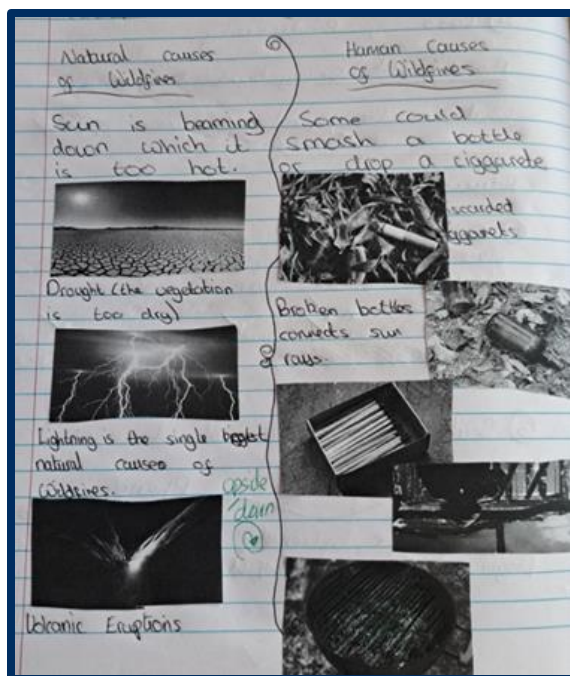 Natural causes
of Wildfires
Sun is beaming
down which it
is too hot.
Drought (the vegetation
is too dry)
Lightning is the single biggest
natural causes of
Wildfires.
opside
down
Volcanic Eruptions
Human Causes
of Wildfires
Some could
smash a bottle
or drop a ciggarete
Broken bottles
connects sun
rays.